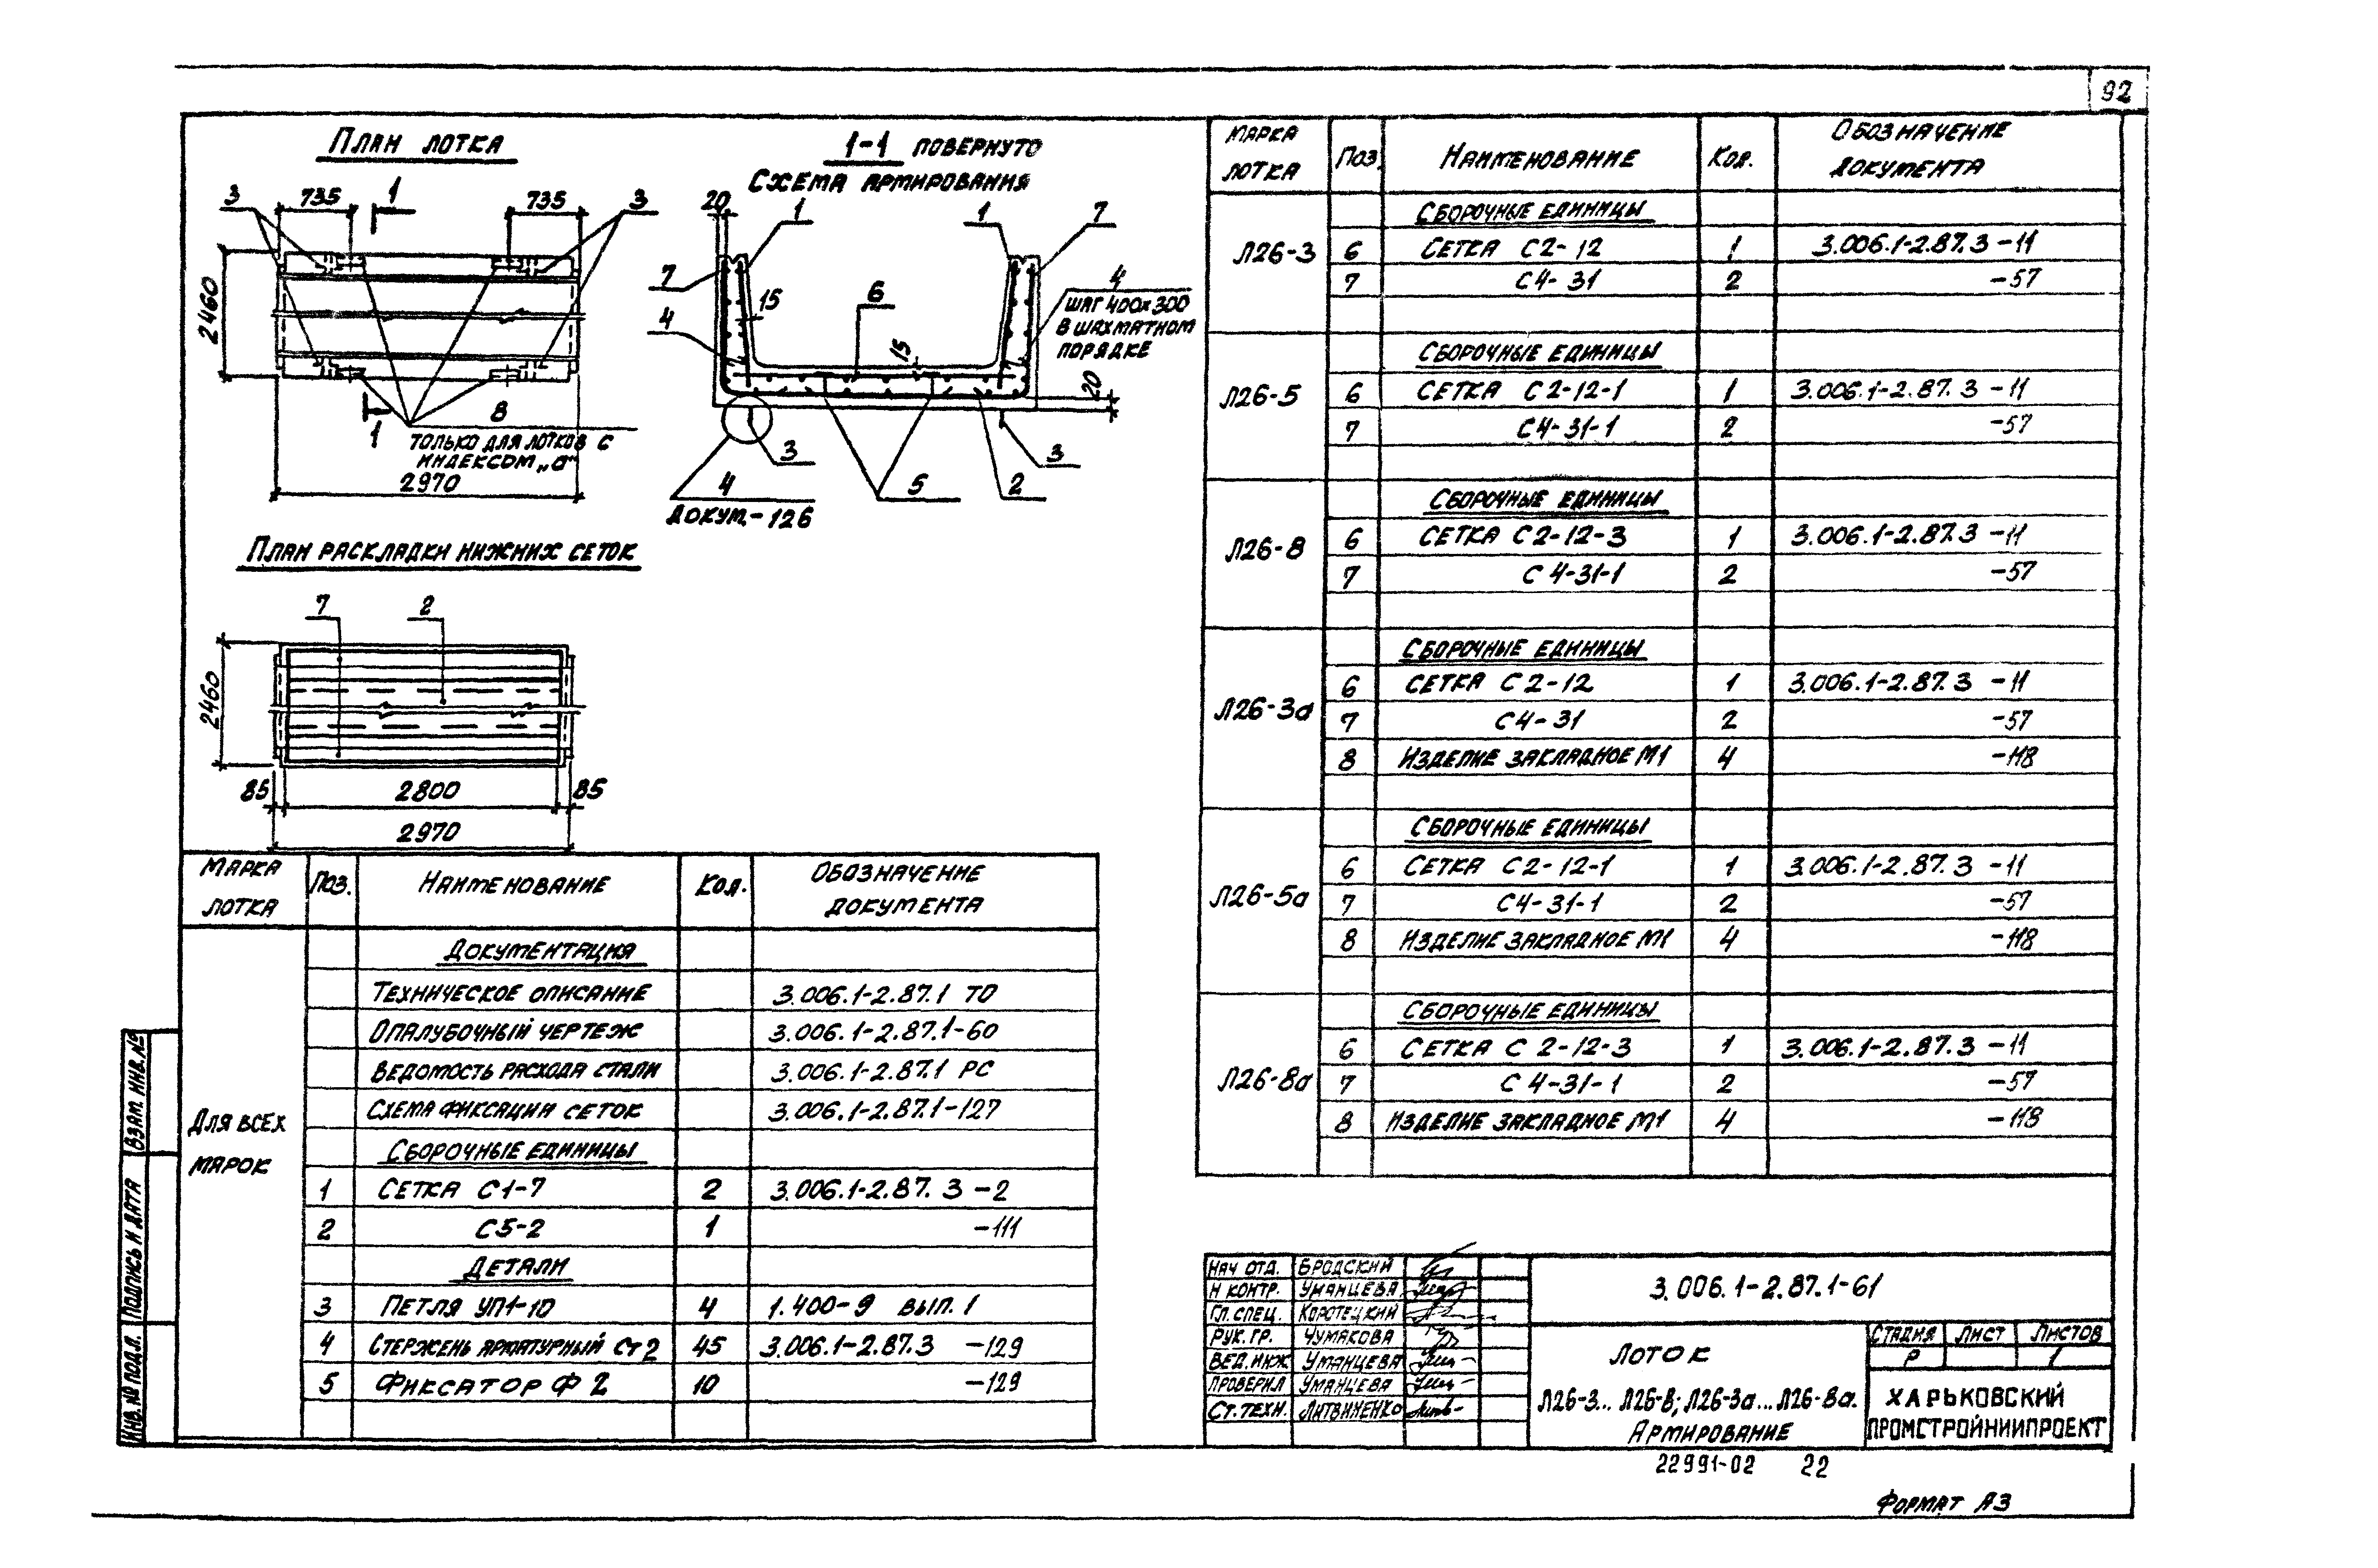 92
План лотка
3
735
1
735
3
2460
1
8
только для лотков с
индексом „а“
2970
1-1 повернуто
Схема армирования
20
1
1
7
7
15
4
6
4
шаг 400х300
в шахматном
порядке
15
20
3
3
4
5
2
докум.-126
План раскладки нижних сеток
7
2
2460
85
2800
85
2970
Марка лотка | Поз. | Наименование | Кол. | Обозначение документа
Для всех марок
Документация
Техническое описание 3.006.1-2.87.1 ТО
Опалубочный чертеж 3.006.1-2.87.1-60
Ведомость расхода стали 3.006.1-2.87.1 РС
Схема фиксации сеток 3.006.1-2.87.1-127
Сборочные единицы
1 Сетка С1-7 2 3.006.1-2.87.3 -2
2 С5-2 1 -111
Детали
3 Петля УП1-10 4 1.400-9 вып. 1
4 Стержень арматурный Ст2 45 3.006.1-2.87.3 -129
5 Фиксатор Ф2 10 -129
Марка лотка | Поз. | Наименование | Кол. | Обозначение документа
Сборочные единицы
Л26-3
6 Сетка С2-12 1 3.006.1-2.87.3 -11
7 С4-31 2 -57
Сборочные единицы
Л26-5
6 Сетка С2-12-1 1 3.006.1-2.87.3 -11
7 С4-31-1 2 -57
Сборочные единицы
Л26-8
6 Сетка С2-12-3 1 3.006.1-2.87.3 -11
7 С4-31-1 2 -57
Сборочные единицы
Л26-3а
6 Сетка С2-12 1 3.006.1-2.87.3 -11
7 С4-31 2 -57
8 Изделие закладное М1 4 -118
Сборочные единицы
Л26-5а
6 Сетка С2-12-1 1 3.006.1-2.87.3 -11
7 С4-31-1 2 -57
8 Изделие закладное М1 4 -118
Сборочные единицы
Л26-8а
6 Сетка С2-12-3 1 3.006.1-2.87.3 -11
7 С4-31-1 2 -57
8 Изделие закладное М1 4 -118
Взам. инв.№
Подпись и дата
Инв. № подл.
Нач отд. Бродский
Н контр. Уманцева
Гл. спец. Коротецкий
Рук. гр. Чумакова
Вед. инж Уманцева
Проверил Уманцева
Ст. техн. Литвиненко
3.006.1-2.87.1-61
Лоток
Л26-3... Л26-8; Л26-3а...Л26-8а.
Армирование
Стадия Лист Листов
Р 1
Харьковский
Промстройниипроект
22991-02 22
Формат А3